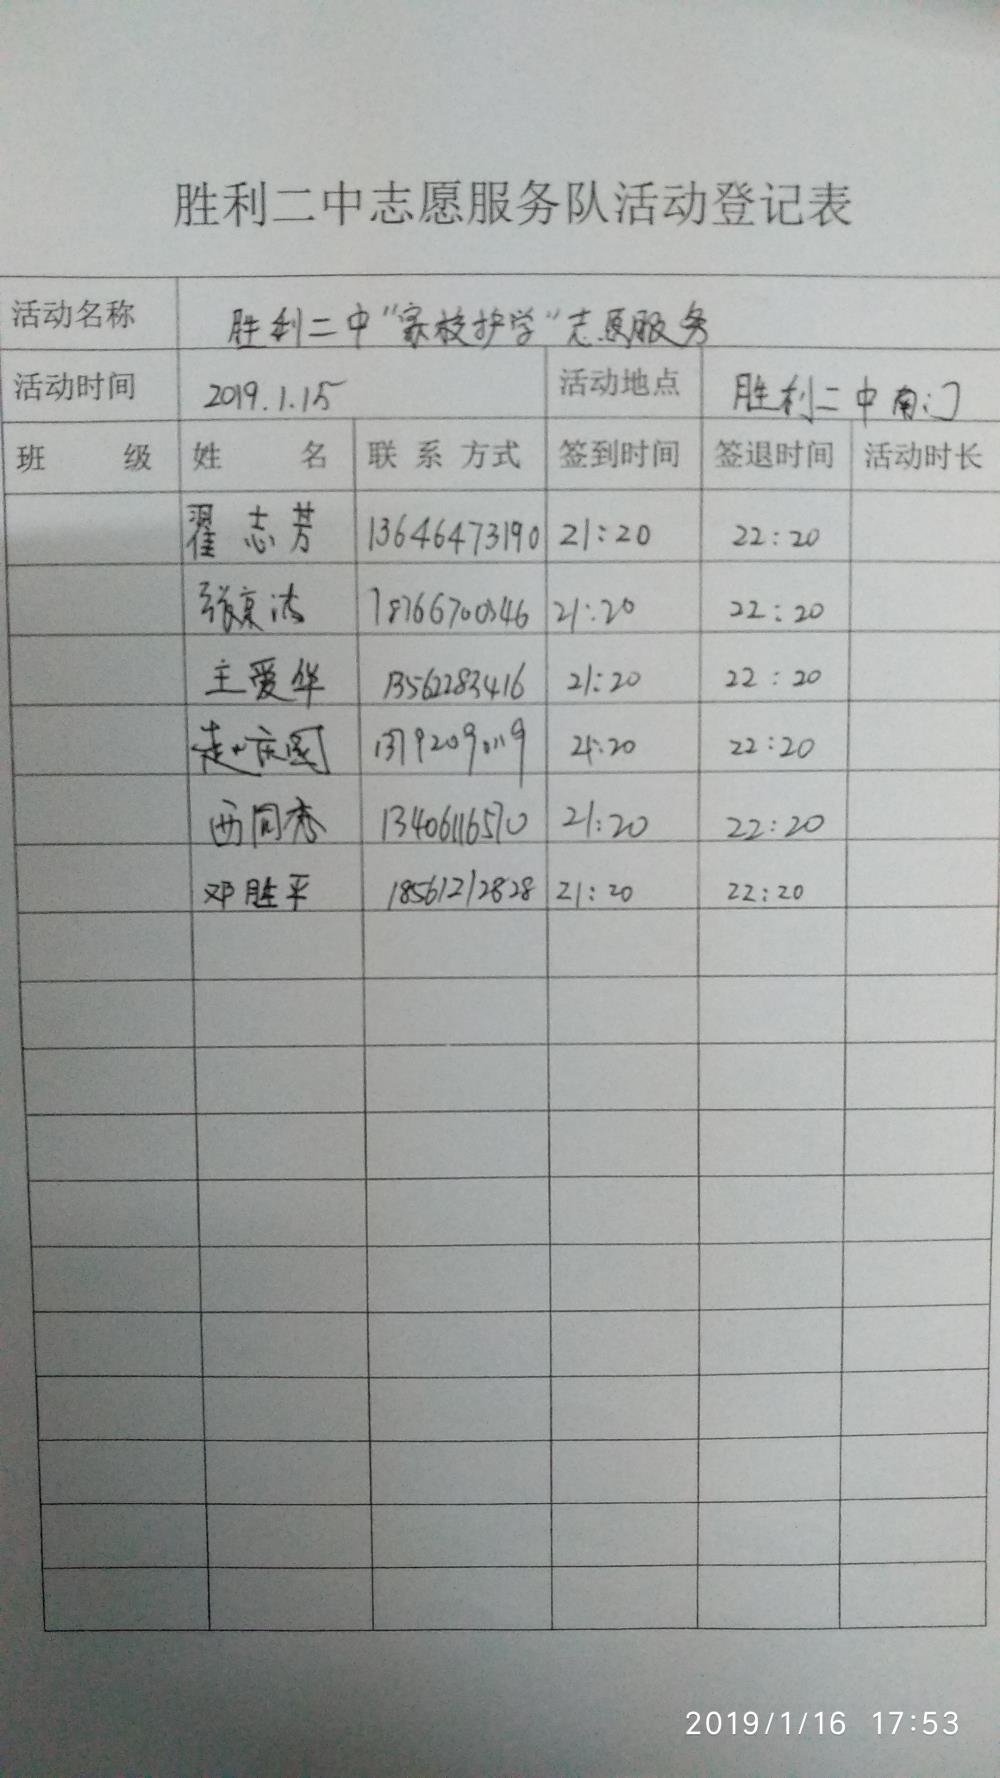 胜利二中志愿服务队活动登记表
活动名称 胜利二中“家校护学”志愿服务
活动时间 2019.1.15 活动地点 胜利二中南门
班 级 姓 名 联系方式 签到时间 签退时间 活动时长
翟志芳 13646473190 21:20 22:20
张京法 18766700346 21:20 22:20
主爱华 13562283416 21:20 22:20
赵庆国 21:20 22:20
西同秀 13406116570 21:20 22:20
邓胜平 18561212828 21:20 22:20
2019/1/16 17:53